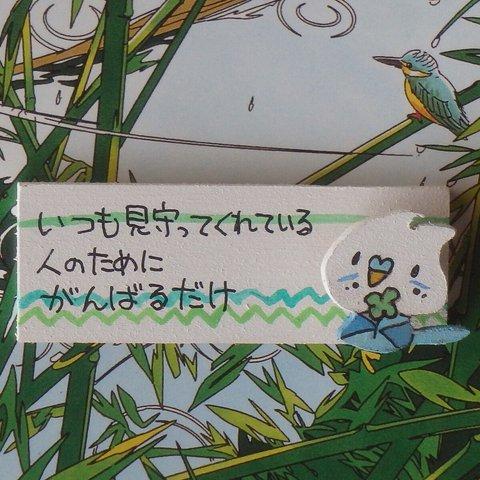 いつも見守ってくれている
人のために
がんばるだけ